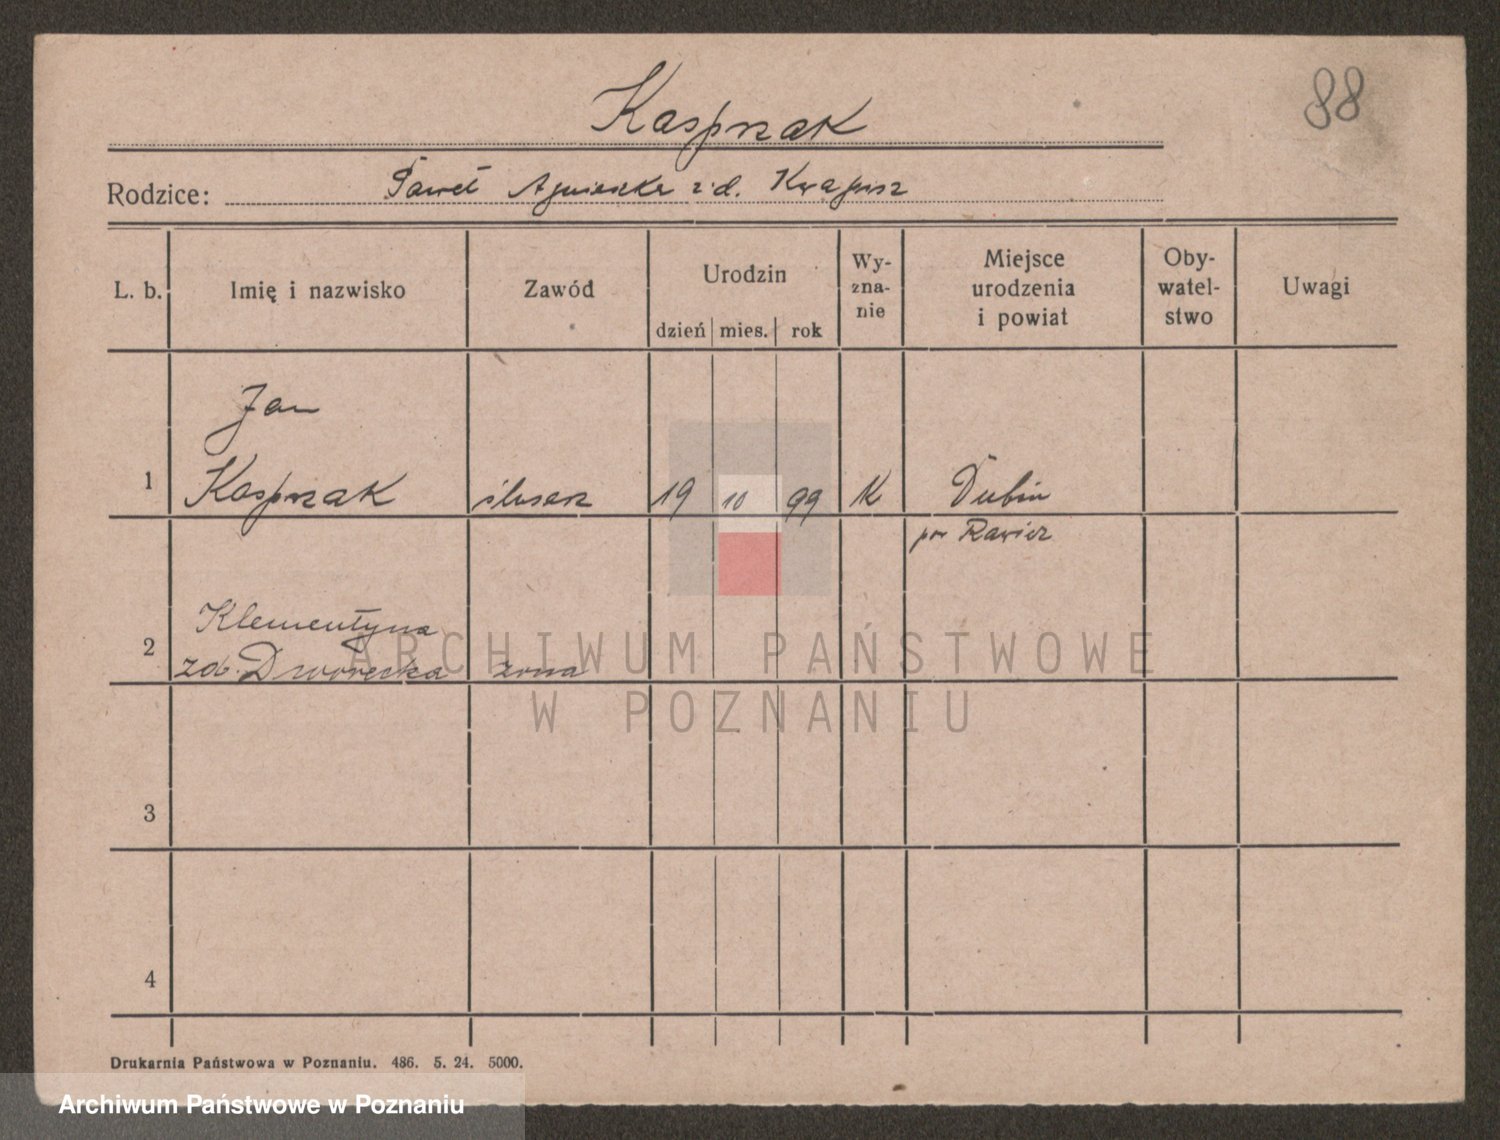 Kasprzak
88
Rodzice: Paweł Agnieszka z d. Kwapisz
L. b. Imię i nazwisko Zawód Urodzin dzień mies. rok Wy-zna-nie Miejsce urodzenia i powiat Oby-watel-stwo Uwagi
Jan
1 Kasprzak ślusarz 19 10 99 K Dubin
pow Rawicz
Klementyna
2 zd. Dworecka żona
3
4
Drukarnia Państwowa w Poznaniu. 486. 5. 24. 5000.
ARCHIWUM PAŃSTWOWE
W POZNANIU
Archiwum Państwowe w Poznaniu